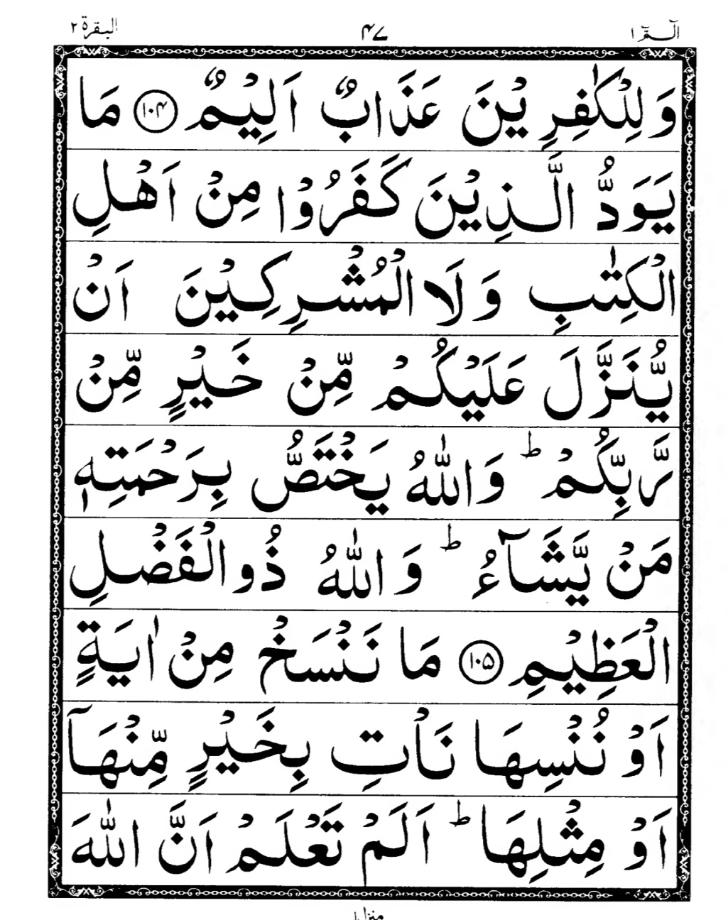 الٓمّٓ ١ ٤٧ البقرة ٢
وَلِلْكٰفِرِيْنَ عَذَابٌ اَلِيْمٌ ﴿١٠٤﴾ مَا
يَوَدُّ الَّذِيْنَ كَفَرُوْا مِنْ اَهْلِ
الْكِتٰبِ وَلَا الْمُشْرِكِيْنَ اَنْ
يُّنَزَّلَ عَلَيْكُمْ مِّنْ خَيْرٍ مِّنْ
رَّبِّكُمْ ؕ وَاللّٰهُ يَخْتَصُّ بِرَحْمَتِهٖ
مَنْ يَّشَآءُ ؕ وَاللّٰهُ ذُو الْفَضْلِ
الْعَظِيْمِ ﴿١٠٥﴾ مَا نَنْسَخْ مِنْ اٰيَةٍ
اَوْ نُنْسِهَا نَاْتِ بِخَيْرٍ مِّنْهَآ
اَوْ مِثْلِهَا ؕ اَلَمْ تَعْلَمْ اَنَّ اللّٰهَ
منزل ١